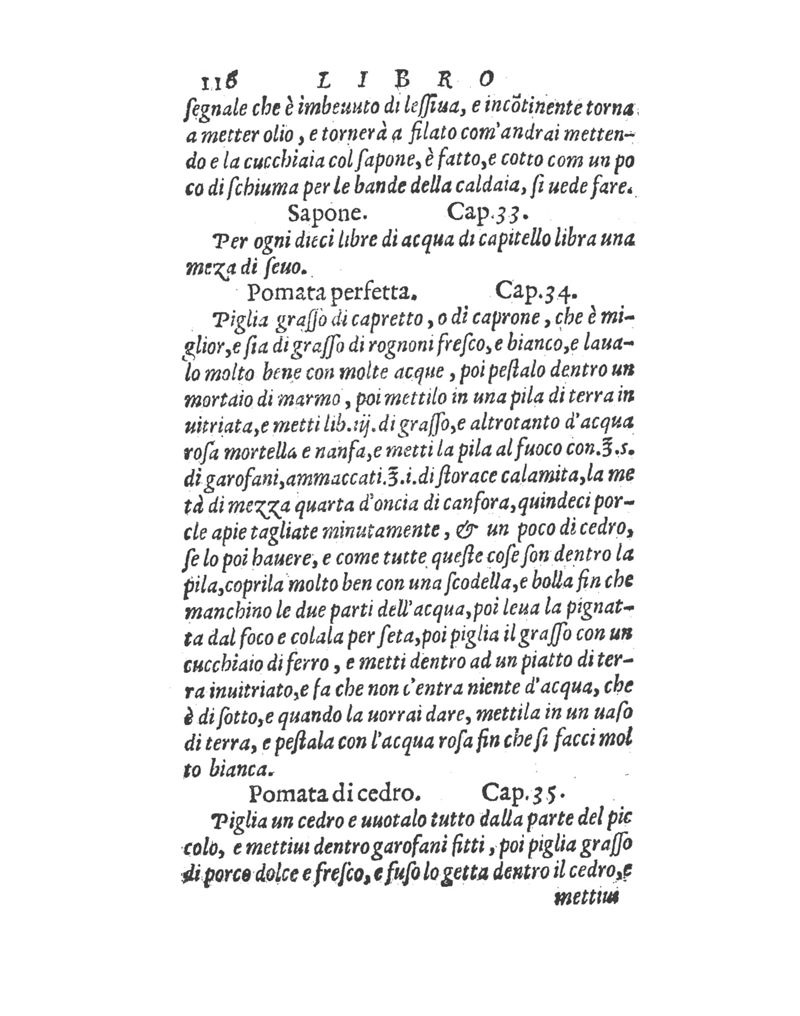 116 L I B R O
ſegnale che è imbeuuto di leſſiua, e incõtinente torna
a metter olio, e tornerà a filato com'andrai metten-
do e la cucchiaia col ſapone, è fatto, e cotto com un po
co di ſchiuma per le bande della caldaia, ſi uede fare.
Sapone. Cap.33.
Per ogni dieci libre di acqua di capitello libra una
meza di ſeuo.
Pomata perfetta. Cap.34.
Piglia graſſo di capretto, o di caprone, che è mi-
glior, e ſia di graſſo di rognoni freſco, e bianco, e laua-
lo molto bene con molte acque, poi peſtalo dentro un
mortaio di marmo, poi mettilo in una pila di terra in
uitriata, e metti lib.iij.di graſſo, e altrotanto d'acqua
roſa mortella e nanfa, e metti la pila al fuoco con.℥.s.
di garofani, ammaccati.℥.i.di ſtorace calamita, la me
tà di mezza quarta d'oncia di canfora, quindeci por-
cle apie tagliate minutamente, & un poco di cedro,
ſe lo poi hauere, e come tutte queſte coſe ſon dentro la
pila, coprila molto ben con una ſcodella, e bolla fin che
manchino le due parti dell'acqua, poi leua la pignat-
ta dal foco e colala per ſeta, poi piglia il graſſo con un
cucchiaio di ferro, e metti dentro ad un piatto di ter-
ra inuitriato, e fa che non c'entra niente d'acqua, che
è di ſotto, e quando la uorrai dare, mettila in un uaſo
di terra, e peſtala con l'acqua roſa fin che ſi facci mol
to bianca.
Pomata di cedro. Cap.35.
Piglia un cedro e uuotalo tutto dalla parte del pic
colo, e mettiui dentro garofani fitti, poi piglia graſſo
di porco dolce e freſco, e fuſo lo getta dentro il cedro, e
mettiui